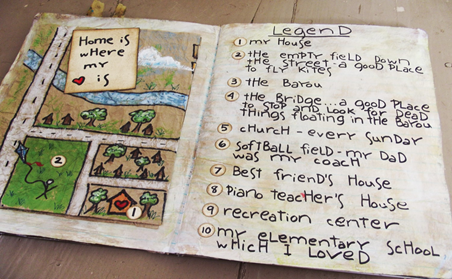 Home is
where
my
is
2
1
LegenD
1 my House
2 tHe empty fielD Down
tHe street - a gooD PLace
to fLy kites
3 tHe Bayou
4 tHe BriDge - a gooD PLace
to stop anD Look for DeaD
tHings fLoating in tHe Bayou
5 cHurcH - every sunDay
6 softBaLL fielD - my DaD
was my coacH
7 Best frienD's House
8 Piano teacHer's House
9 recreation center
10 my eLementary scHooL
wHicH I LoveD